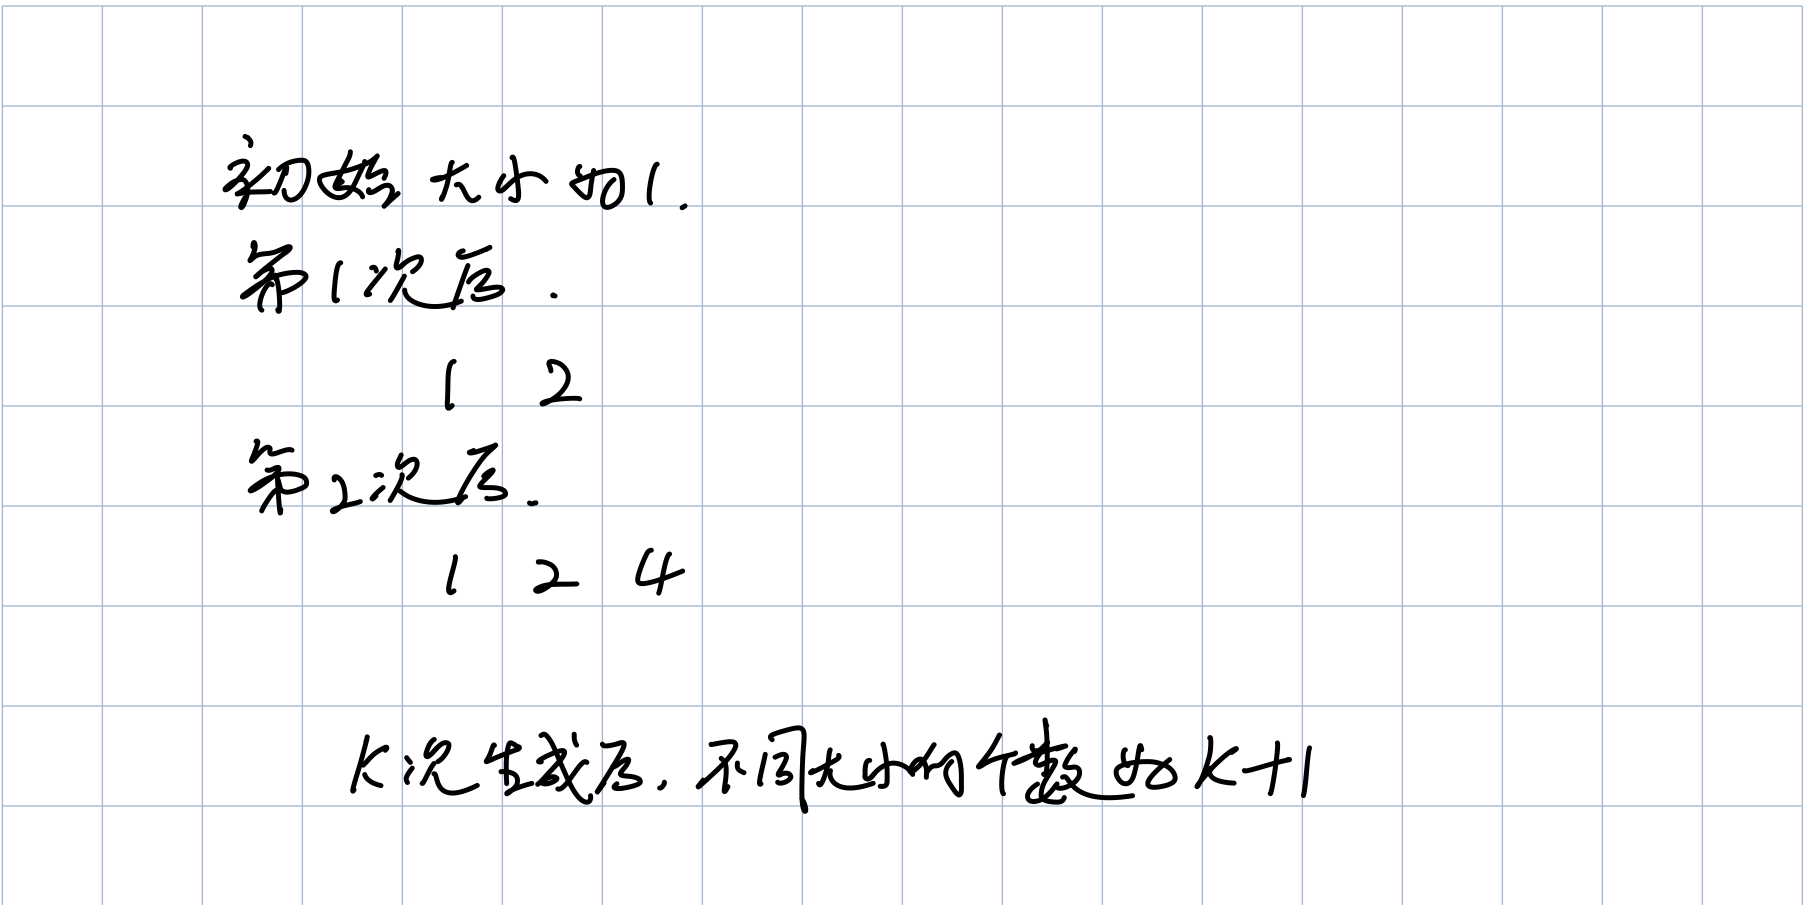 初始大小为1.
第1次后.
1 2
第2次后.
1 2 4
K次生成后,不同大小的个数为K+1